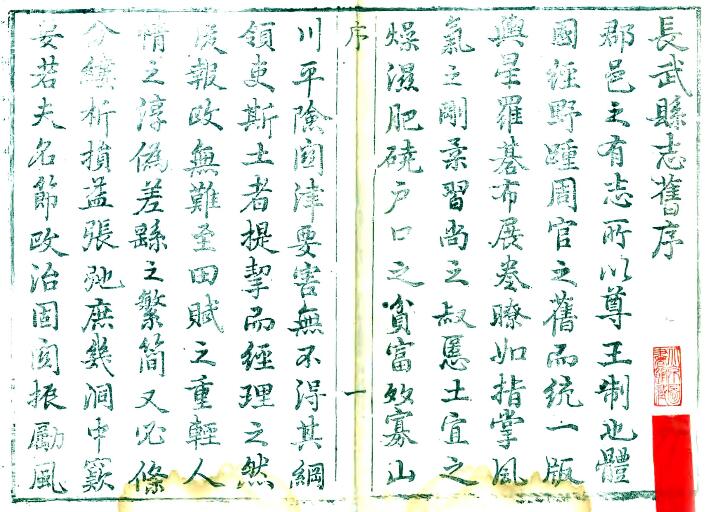 長武縣志舊序
郡邑之有志所以尊王制也體
國經野踵周官之舊而統一版
輿星羅碁布展卷瞭如指掌風
氣之剛柔習尚之淑慝土宜之
燥濕肥磽戶口之貧富衆寡山
序
一
川平險関津要害無不得其綱
領吏斯土者提挈而經理之然
後報政無難至田賦之重輕人
情之淳偽差繇之繁簡又必條
分縷析損益張弛庶幾洞中窾
要若夫名節政治固関振勵風